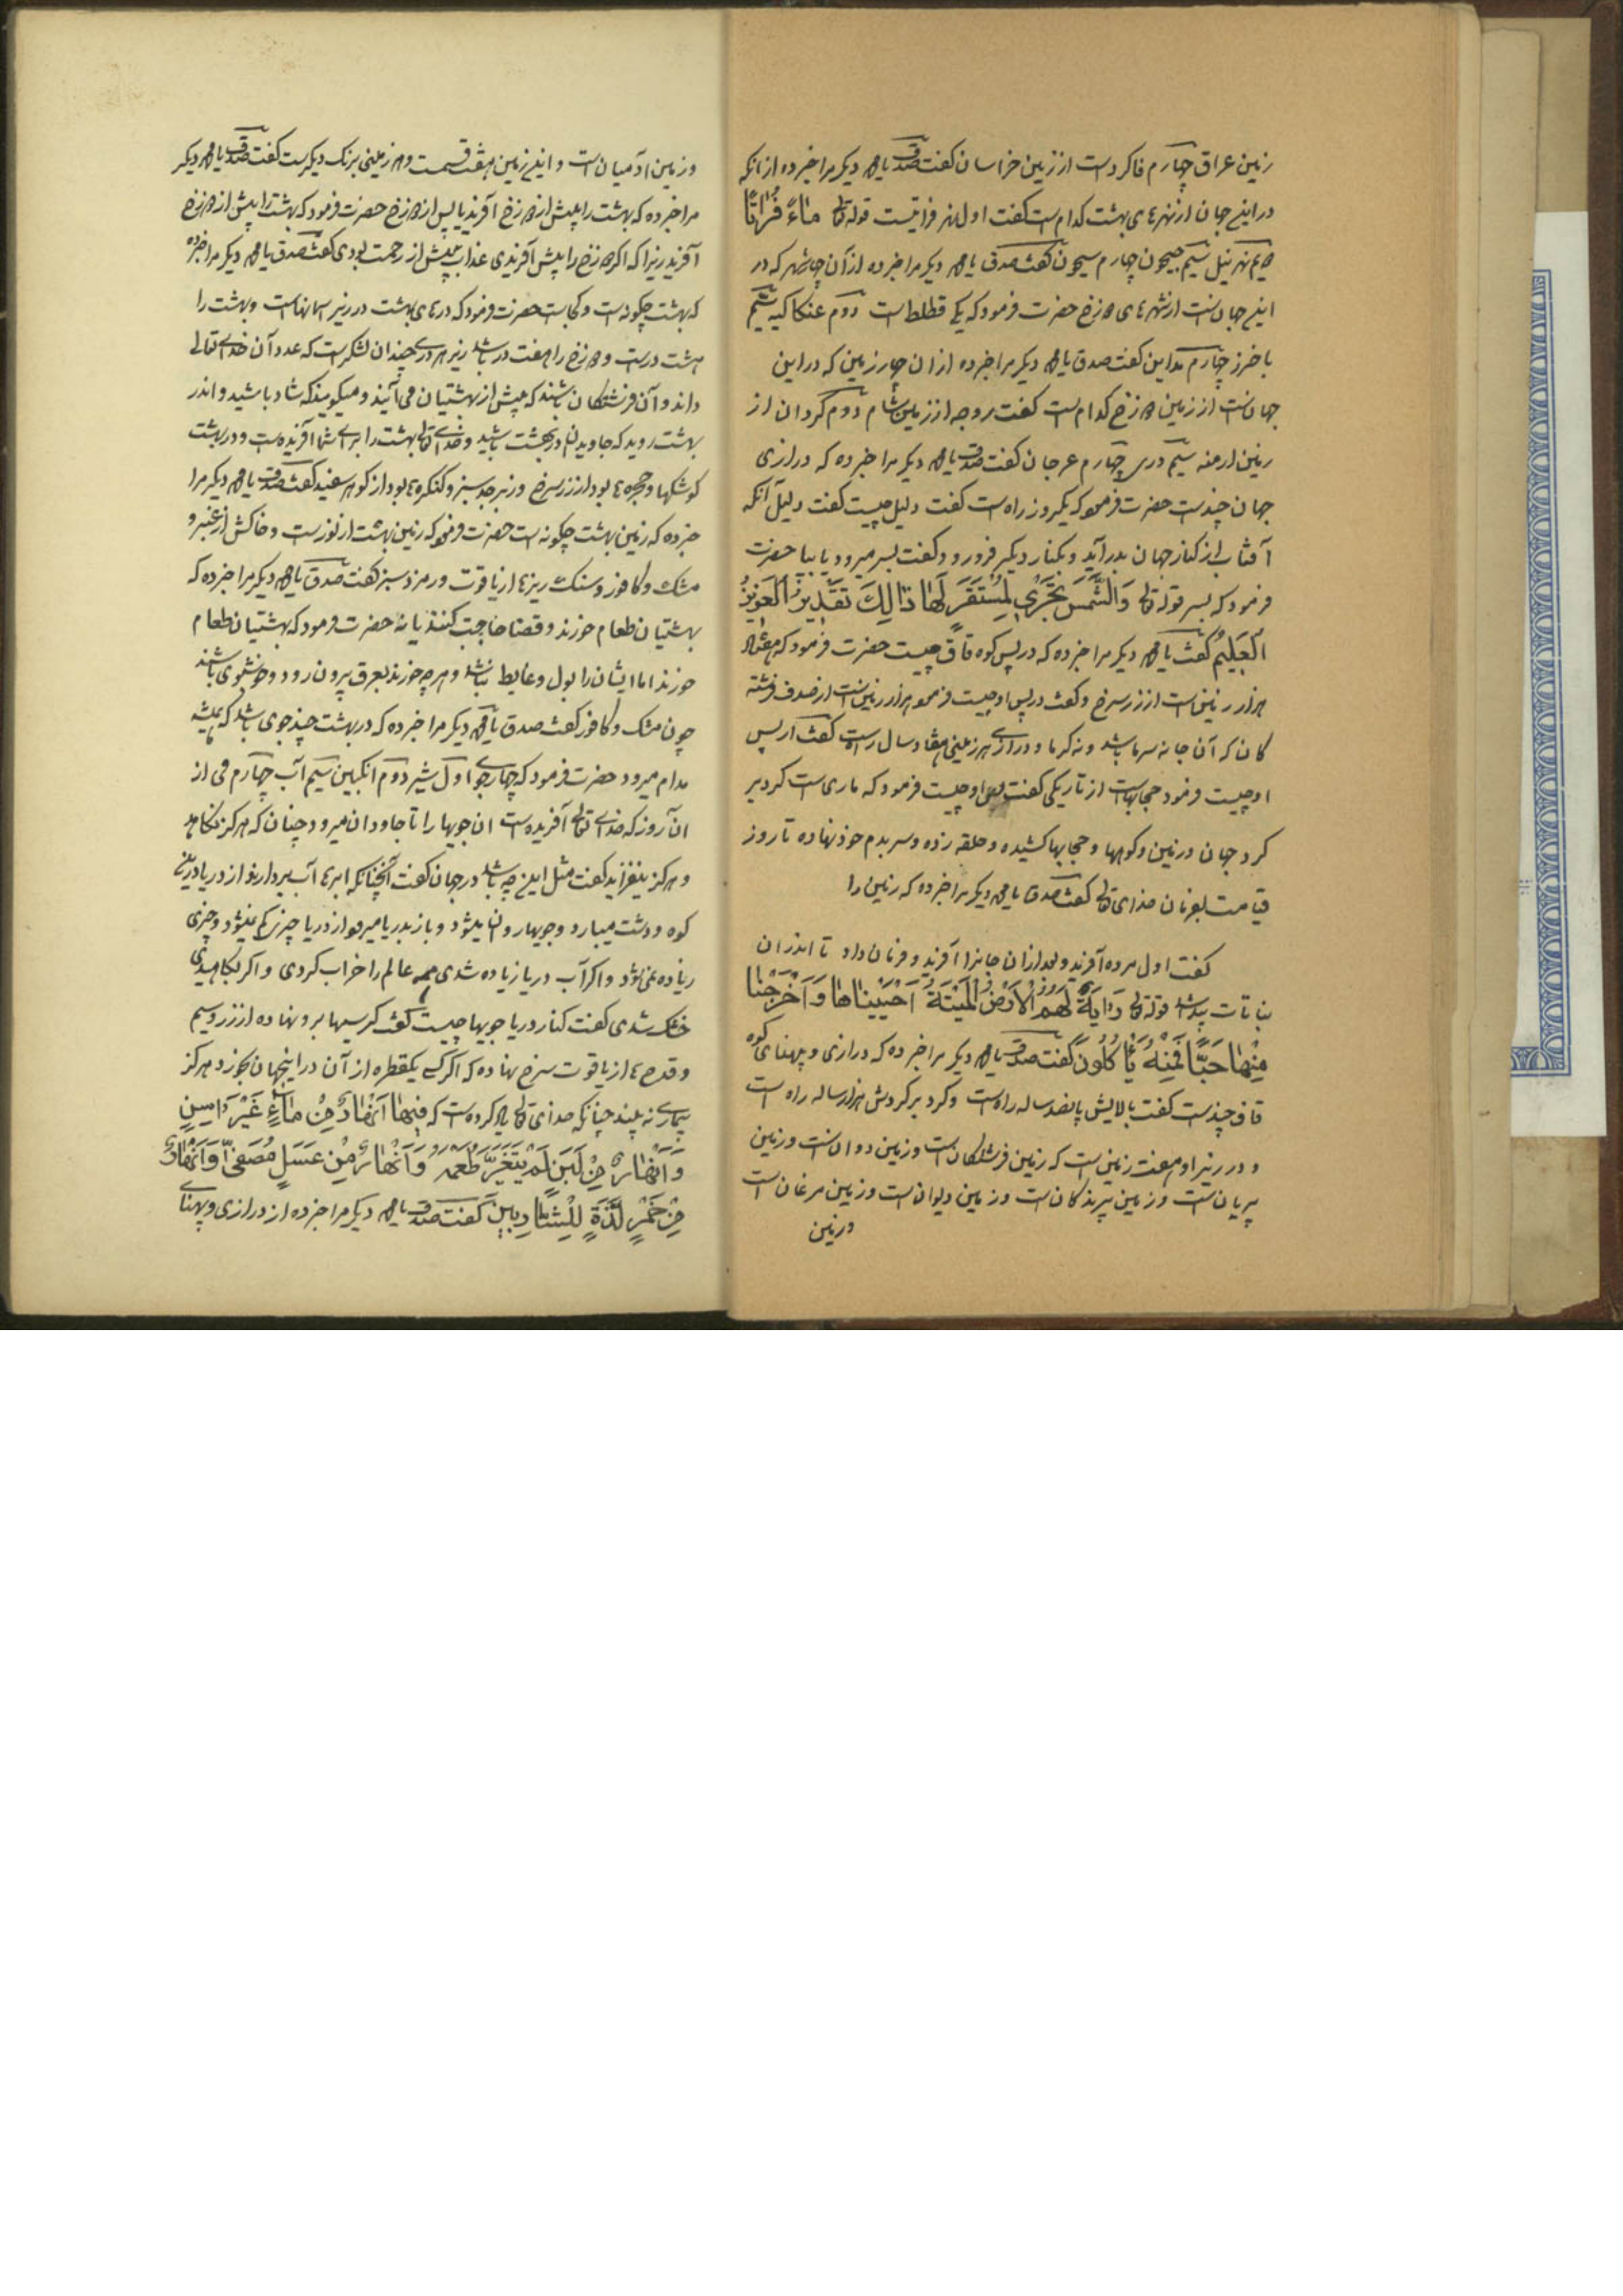 زمین عراق چهارم فاکردست از زمین خراسان کفت صدق یا محمد دیکر مرا خبر ده از انکه
در این جهان از نهرهای بهشت کدام است کفت اول نهر فراتیست قوله تعالی مَاءً فُرَاتًا
دویم نهر نیل سیم جیحون چهارم سیحون کفت صدق یا محمد دیکر مرا خبر ده از آن چهار شهر که در
این جهانست از شهرهای دوزخ حضرت فرمود که یکی قطلط است دوم عنکاکیه سیم
باخرز چهارم مداین کفت صدق یا محمد دیکر مرا خبر ده از ان چهار زمین که در این
جهانست از زمین دوزخ کدام است کفت بروجه از زمین شام دوم کردان از
زمین ارمنه سیم دری چهارم عرجان کفت صدق یا محمد دیکر مرا خبر ده که درازی
جهان چندست حضرت فرمود که یکروز راه است کفت دلیل چیست کفت دلیل آنکه
آفتاب از کنار جهان بدر آید و بکنار دیکر فرو رود کفت بسر میرود یا بپا حضرت
فرمود که بسر قوله تعالی وَالشَّمْسُ تَجْرِي لِمُسْتَقَرٍّ لَهَا ذَالِكَ تَقْدِيرُ الْعَزِيزِ
الْعَلِيمِ کفت یا محمد دیکر مرا خبر ده که در پس کوه قاف چیست حضرت فرمود که هفتاد
هزار زمین است از زر سرخ و کفت در پس او چیست فرمود هزار زمین است از صدف فرشته
کان که آن جا نه سرما باشد و نه کرما و درازی هر زمینی هفتاد سال راهست کفت از پس
او چیست فرمود حجابهاست از تاریکی کفت پس او چیست فرمود که ماری است کرد بر
کرد جهان و زمین و کوهها و حجابها کشیده و حلقه زده و سر بدم خود نهاده تا روز
قیامت بفرمان خدای تعالی کفت صدق یا محمد دیکر مرا خبر ده که زمین را
کفت اول مرده آفرید و بعد ازان جانرا آفرید و فرمان داد تا اندران
نباتات پیدا شد قوله تعالی وَآيَةٌ لَهُمُ الْأَرْضُ الْمَيْتَةُ أَحْيَيْنَاهَا وَأَخْرَجْنَا
مِنْهَا حَبًّا فَمِنْهُ يَأْكُلُونَ کفت صدق یا محمد دیکر مرا خبر ده که درازی و پهنای کوه
قاف چندست کفت بالایش پانصد ساله راه است و کرد بر کردش هزار ساله راه است
و در زیر او هفت زمین است که زمین فرشتکان است و زمین دوانست و زمین
پریان است و زمین پرندکان است و زمین دیوان است و زمین مرغان است
و زمین
و زمین آدمیان است و این زمین هفت قسمت و هر زمینی برنک دیکرست کفت صدق یا محمد دیکر
مرا خبر ده که بهشت را پیش از دوزخ آفرید یا پس از دوزخ حضرت فرمود که بهشت را پیش از دوزخ
آفرید زیرا که اکر دوزخ را پیش آفریدی عذاب پیش از رحمت بودی کفت صدق یا محمد دیکر مرا خبر ده
که بهشت چکونه است و کجاست حضرت فرمود که درهای بهشت در زیر آسمانهاست و بهشت را
هشت درست و دوزخ را هفت در باشد زیر هر دری چندان لشکر است که عدد آن خدای تعالی
داند و آن فرشتکان باشند که پیش از بهشتیان می آیند و میکویند که شاد باشید و اندر
بهشت روید که جاویدان در بهشت باشید و خدای تعالی بهشت را برای شما آفریده است و در بهشت
کوشکها و حجرها بود از زر سرخ و زبرجد سبز و کنکرها بود از کوهر سفید کفت صدق یا محمد دیکر مرا
خبر ده که زمین بهشت چکونه است حضرت فرمود که زمین بهشت از نورست و خاکش از عنبر و
مشک و کافور و سنک ریزها از یاقوت و زمرد سبز کفت صدق یا محمد دیکر مرا خبر ده که
بهشتیان طعام خورند و قضا حاجت کنند یا نه حضرت فرمود که بهشتیان طعام
خورند اما ایشان را بول و غایط نباشد و هر چه خورند بعرق بیرون رود و خوشبوی باشند
چون مشک و کافور کفت صدق یا محمد دیکر مرا خبر ده که در بهشت چند جوی باشد که همیشه
مدام میرود حضرت فرمود که چهار جوی اول شیر دوم انکبین سیم آب چهارم می از
ان روز که خدای تعالی آفریده است ان جویها را تا جاودان میرود چنان که هرکز نکاهد
و هرکز نیفزاید کفت مثل این چه باشد در جهان کفت آنچنانکه ابرها آب بردارند از دریا در این
کوه و دشت میبارد و جویها روان میشود و باز بدریا میرود از دریا چیزی کم نمیشود و چیزی
زیاده نمی شود و اکر آب دریا زیاده شدی همه عالم را خراب کردی و اکر بکاهیدی
خشک شدی کفت کنار دریا جویها چیست کفت کرسیها برو نهاده از زر و سیم
و قدحها از یاقوت سرخ نهاده که اکر کسی یکقطره از آن در اینجهان بخورد هرکز
بیماری نه بیند چنانکه خدای تعالی یاد کرده است که فِيهَا أَنْهَارٌ مِنْ مَاءٍ غَيْرِ آسِنٍ
وَأَنْهَارٌ مِنْ لَبَنٍ لَمْ يَتَغَيَّرْ طَعْمُهُ وَأَنْهَارٌ مِنْ عَسَلٍ مُصَفًّى وَأَنْهَارٌ
مِنْ خَمْرٍ لَذَّةٍ لِلشَّارِبِينَ کفت صدق یا محمد دیکر مرا خبر ده از درازی و پهنای